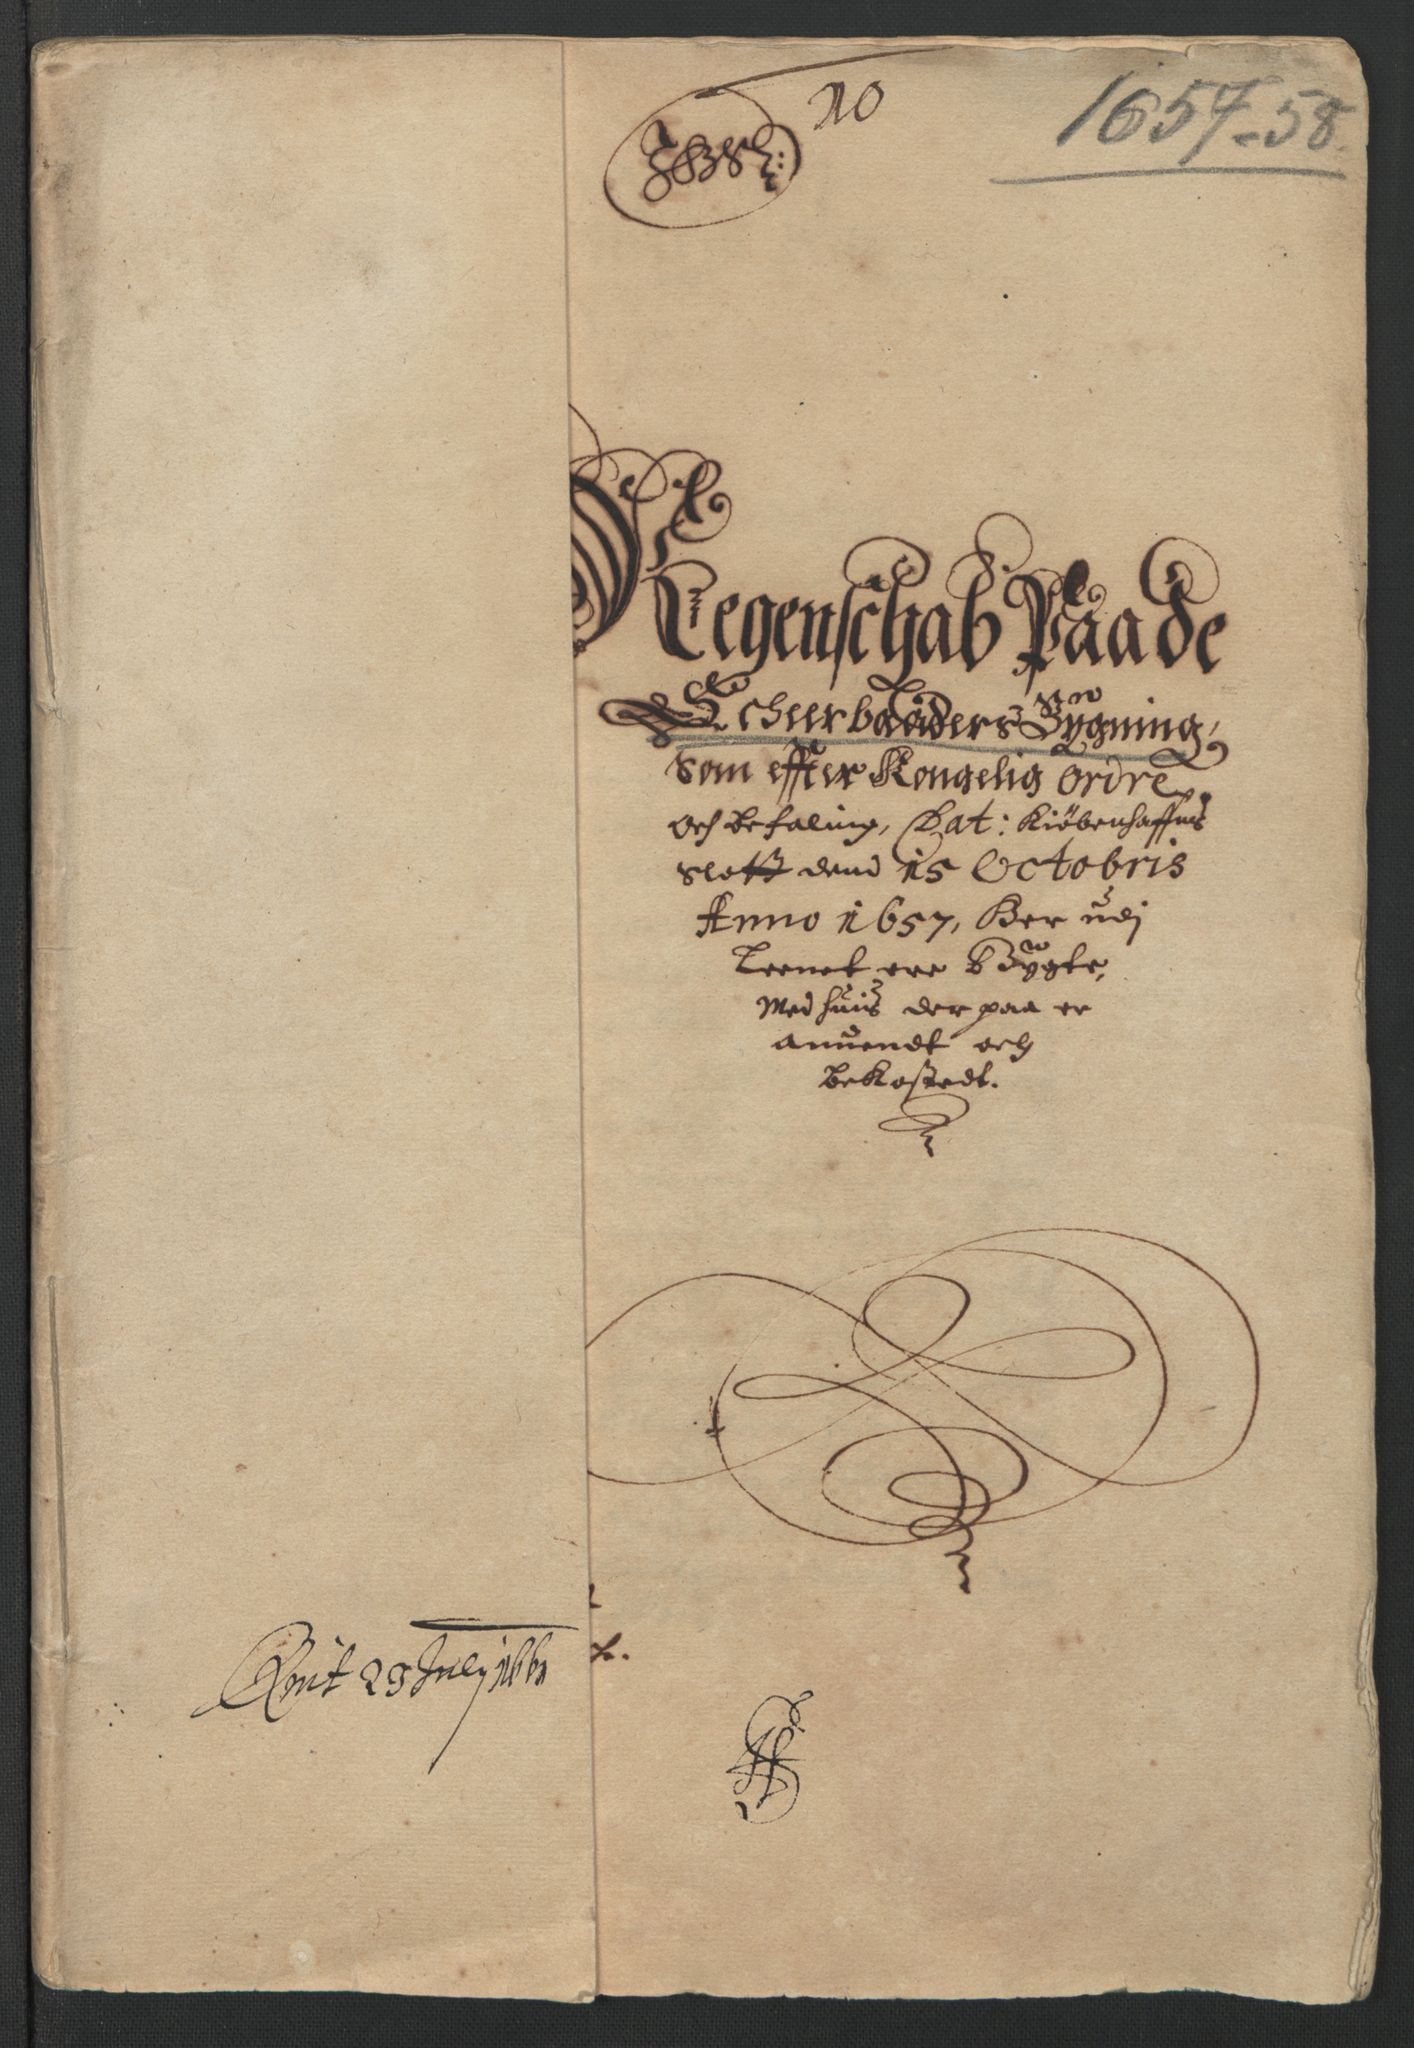 10
1657-58.
Regenschab Paa de
Scheerbaaders Bygning,
som effter Kongelig ordre
och befaling, Dat: Kiöbenhaffns
slott dend 15 Octobris
Anno 1657, Her udj
Leenet ere bygte,
Med huis der paa er
anuendt och
bekostedt.
23 July 1661